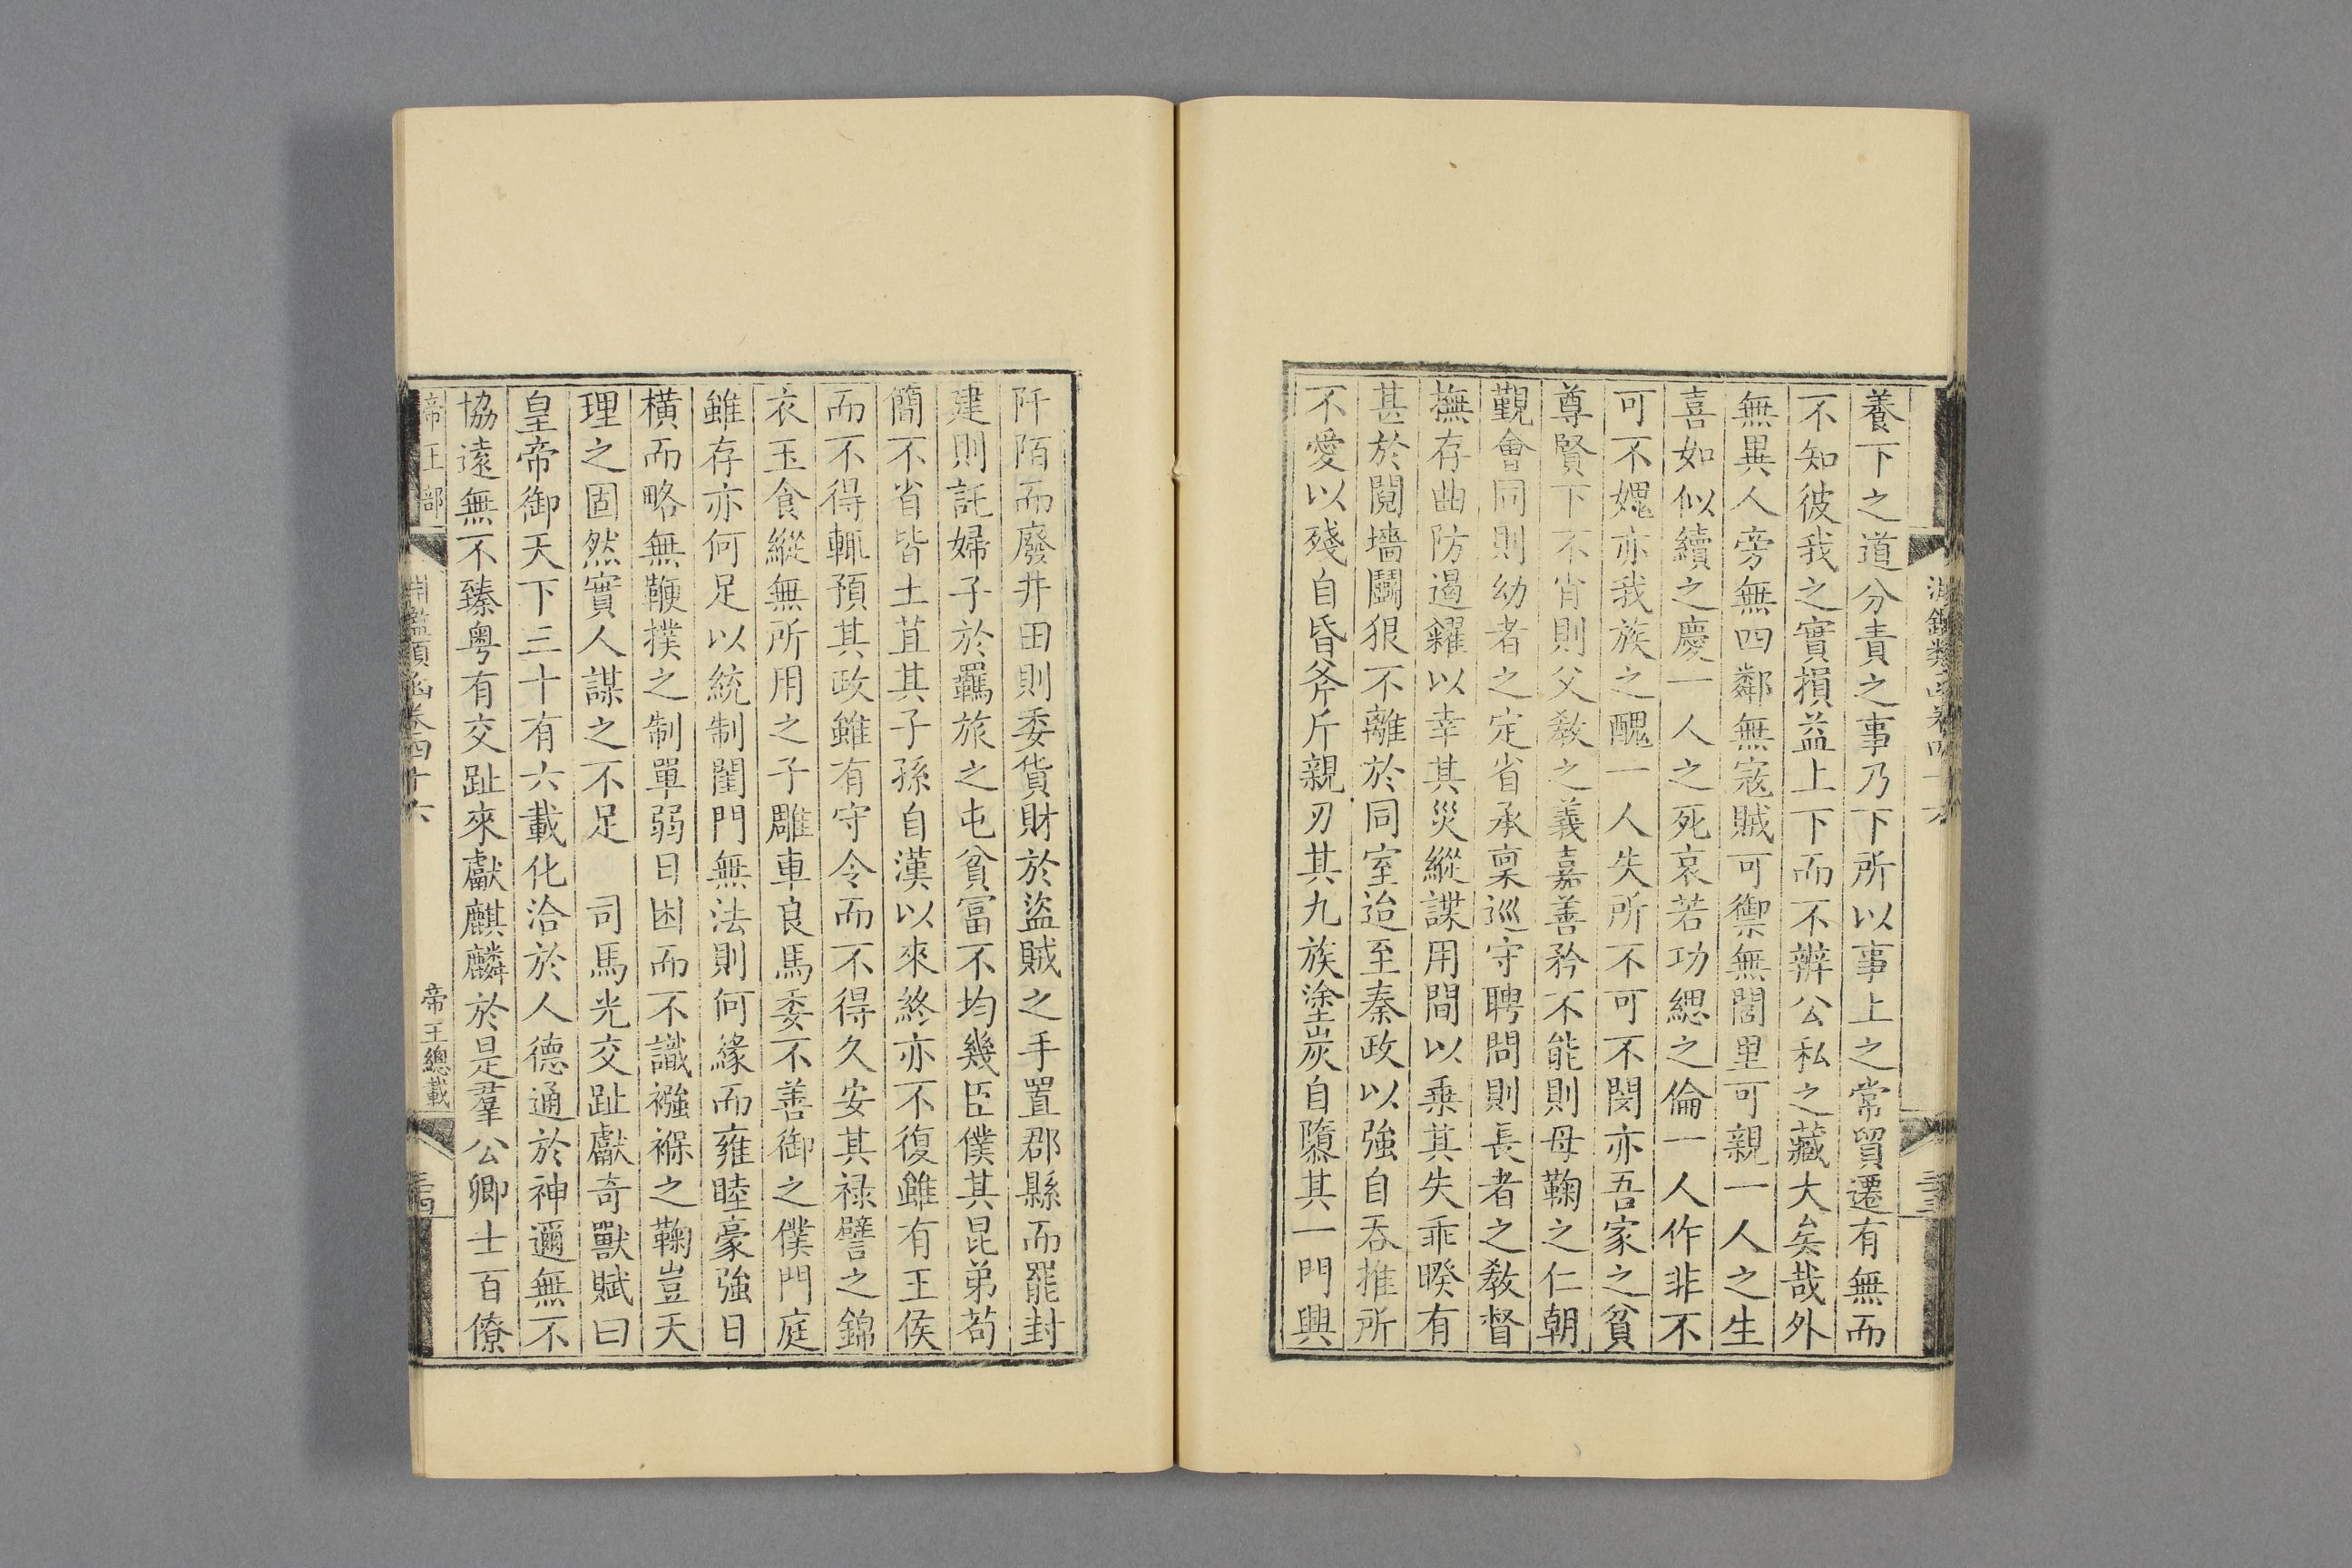 養下之道分責之事乃下所以事上之常貿遷有無而
不知彼我之實損益上下而不辨公私之藏大矣哉外
無異人旁無四鄰無寇賊可禦無閭里可親一人之生
喜如似續之慶一人之死哀若功緦之倫一人作非不
可不媿亦我族之醜一人失所不可不閔亦吾家之貧
尊賢下不肖則父教之義嘉善矜不能則母鞠之仁朝
覲會同則幼者之定省承稟巡守聘問則長者之教督
撫存曲防遏糴以幸其災縱諜用間以乗其失乖暌有
甚於䦧墻鬪狠不離於同室迨至秦政以強自吞推所
不愛以殘自昏斧斤親刃其九族塗炭自隳其一門興
阡陌而廢井田則委貨財於盜賊之手置郡縣而罷封
建則託婦子於羈旅之屯貧富不均幾臣僕其昆弟苟
簡不省皆土苴其子孫自漢以來終亦不復雖有王侯
而不得輒預其政雖有守令而不得久安其祿譬之錦
衣玉食縱無所用之子雕車良馬委不善御之僕門庭
雖存亦何足以統制閨門無法則何緣而雍睦豪強日
橫而略無鞭撲之制單弱日困而不識襁褓之鞠豈天
理之固然實人謀之不足　司馬光交趾獻奇獸賦曰
皇帝御天下三十有六載化洽於人德通於神邇無不
協遠無不臻粤有交趾來獻麒麟於是羣公卿士百僚
帝王部
卷四十六
帝王總載